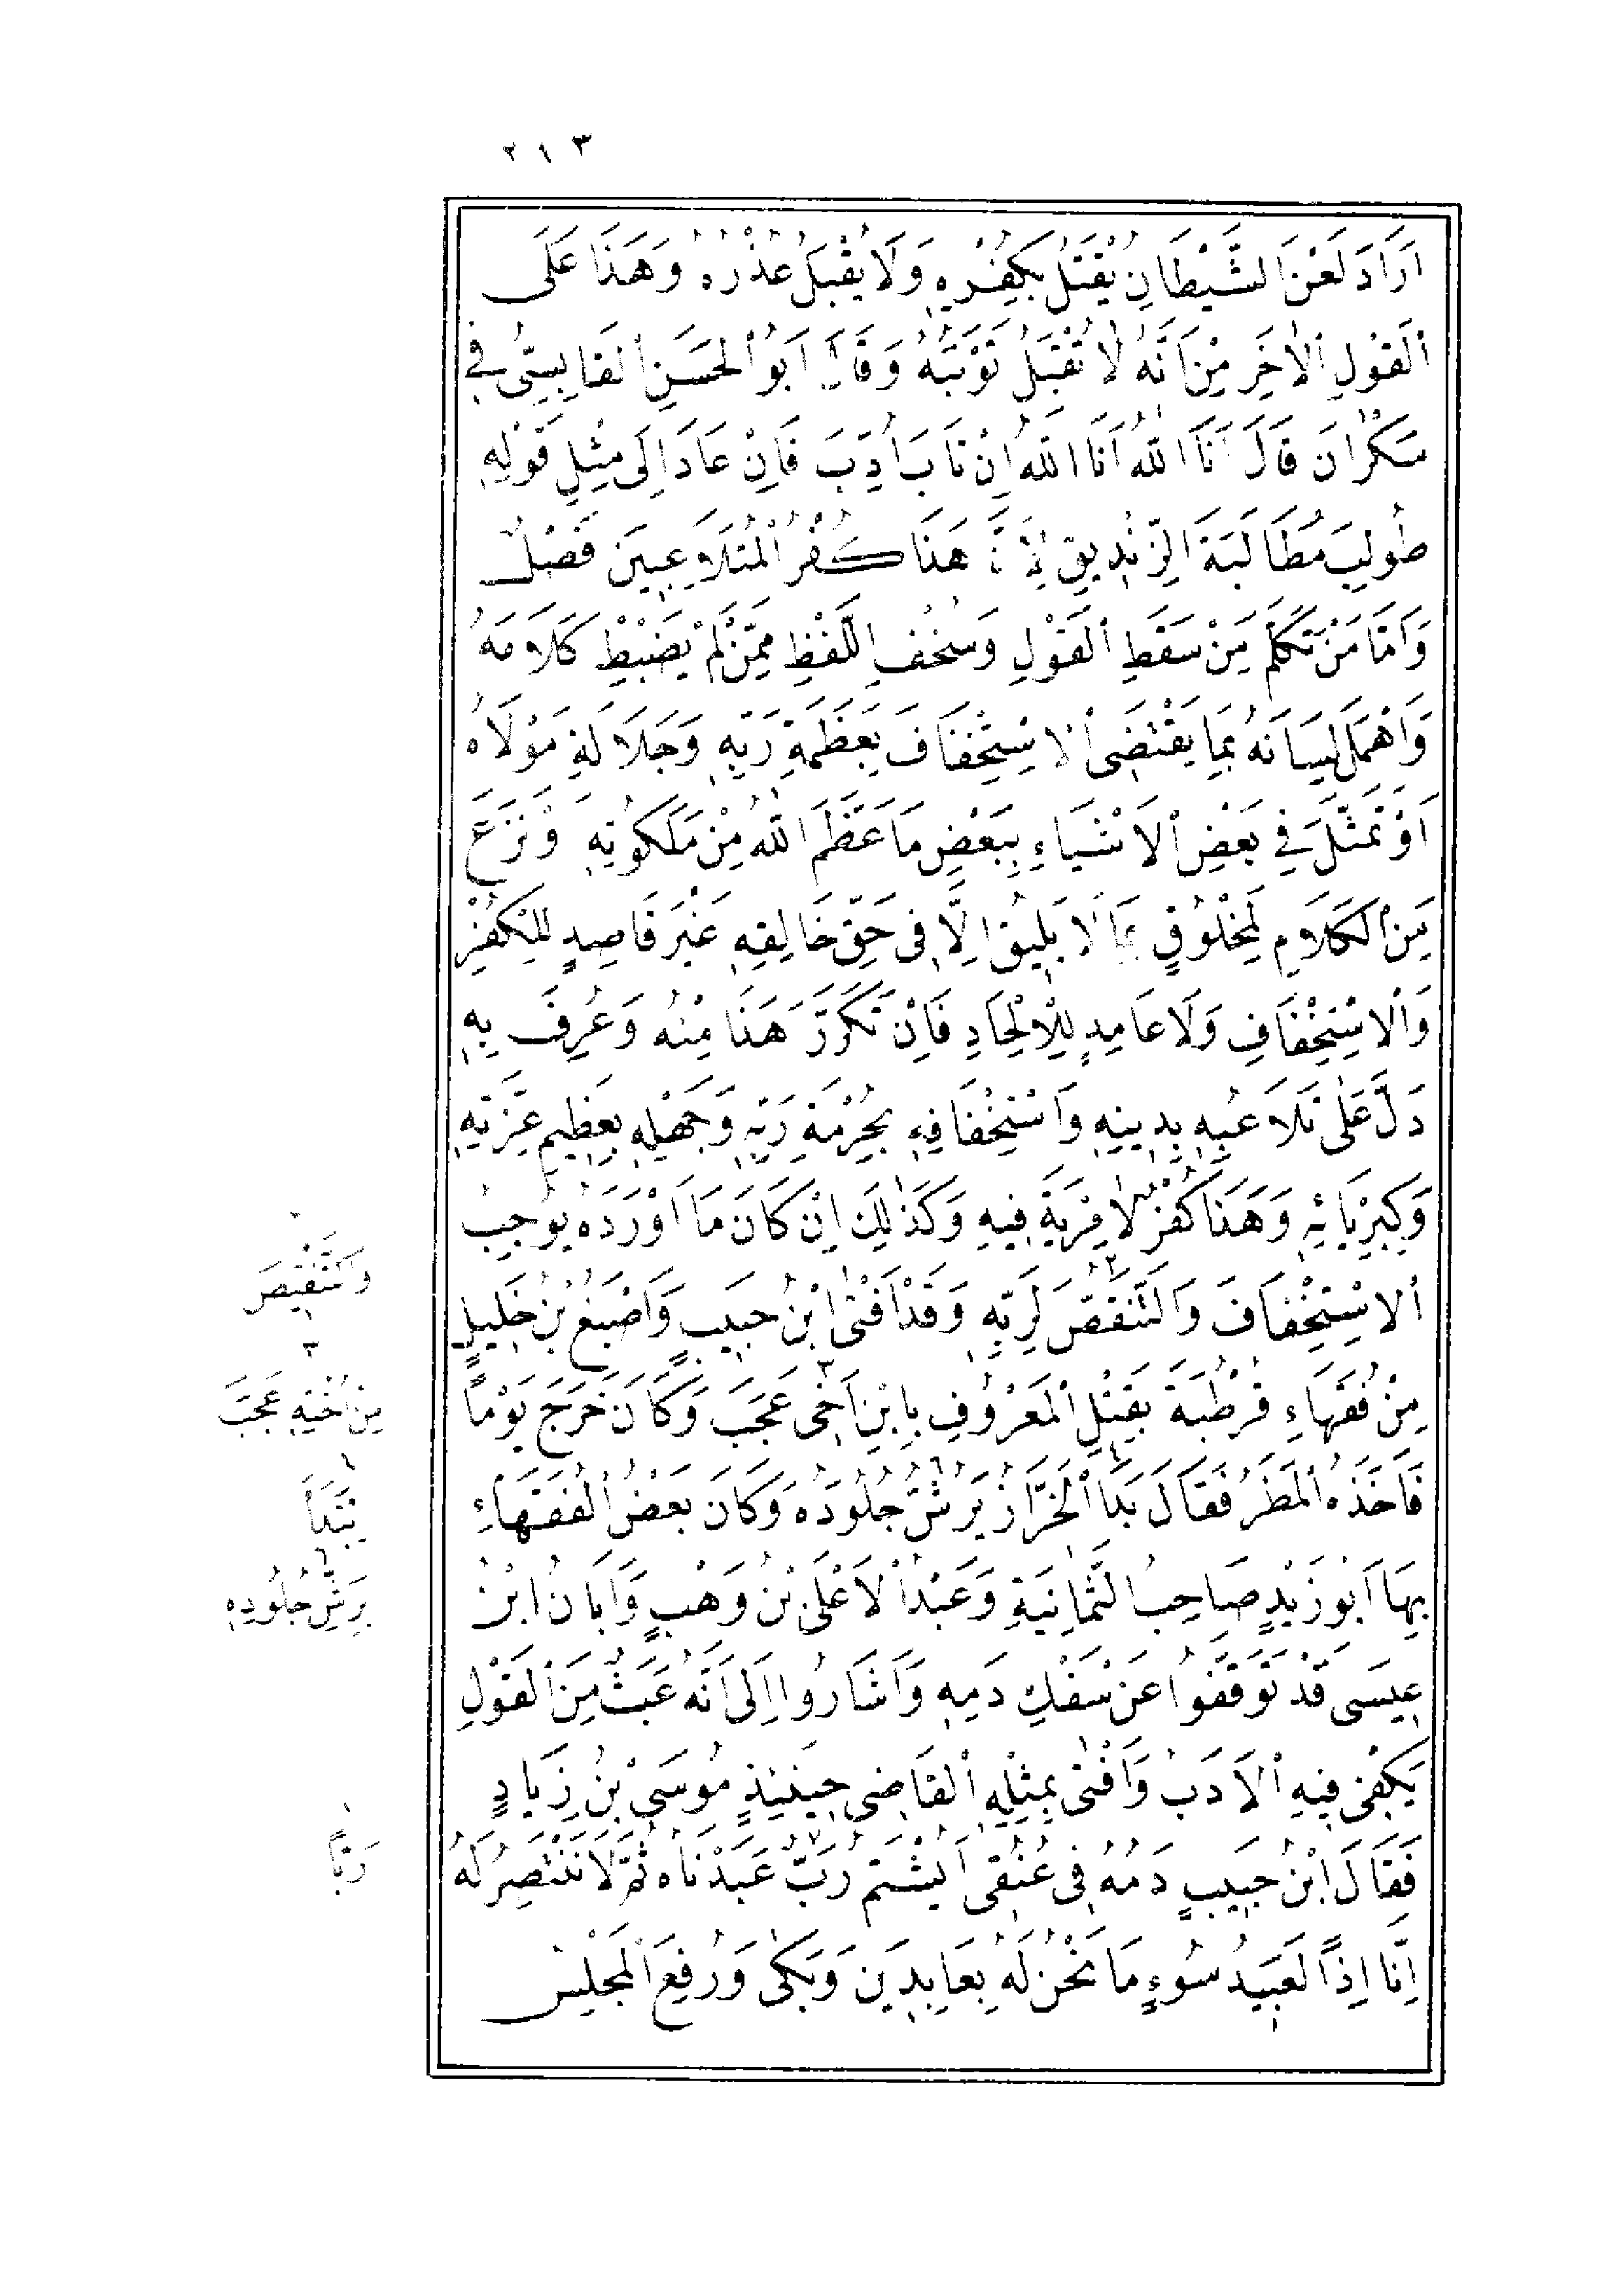 ٢١٣
اَرَادَ لَعْنَ الشَّيْطَانِ يُقْتَلُ بِكُفْرِهِ وَلَا يُقْبَلُ عُذْرُهُ وَهَذَا عَلَى
الْقَوْلِ الْاٰخَرِ مِنْ اَنَّهُ لَا تُقْبَلُ تَوْبَتُهُ وَقَالَ اَبُو الْحَسَنِ الْقَابِسِىُّ فِى
سَكْرَانَ قَالَ اَنَا اللّٰهُ اَنَا اللّٰهُ اِنْ تَابَ اُدِّبَ فَاِنْ عَادَ اِلَى مِثْلِ قَوْلِهِ
طُولِبَ مُطَالَبَةَ الزِّنْدِيقِ لِاَنَّ هَذَا كُفْرُ الْمُتَلَاعِبِينَ فَصْلٌ
وَاَمَّا مَنْ تَكَلَّمَ مِنْ سَقَطِ الْقَوْلِ وَسُخْفِ اللَّفْظِ مِمَّنْ لَمْ يَضْبِطْ كَلَامَهُ
وَاَهْمَلَ لِسَانَهُ بِمَا يَقْتَضِى الْاِسْتِخْفَافَ بِعَظَمَةِ رَبِّهِ وَجَلَالَةِ مَوْلَاهُ
اَوْ تَمَثَّلَ فِى بَعْضِ الْاَشْيَاءِ بِبَعْضِ مَا عَظَّمَ اللّٰهُ مِنْ مَلَكُوتِهِ وْ نَزَعَ
مِنَ الْكَلَامِ لِمَخْلُوقٍ بِمَا لَا يَلِيقُ اِلَّا فِى حَقِّ خَالِقِهِ غَيْرَ قَاصِدٍ لِلْكُفْرِ
وَالْاِسْتِخْفَافِ وَلَا عَامِدٍ لِلْاِلْحَادِ فَاِنْ تَكَرَّرَ هَذَا مِنْهُ وَعُرِفَ بِهِ
دَلَّ عَلَى تَلَاعُبِهِ بِدِينِهِ وَاسْتِخْفَافِهِ بِحُرْمَةِ رَبِّهِ وَجَهْلِهِ بِعَظِيمِ عِزَّتِهِ
وَكِبْرِيَائِهِ وَهَذَا كُفْرٌ لَا مِرْيَةَ فِيهِ وَكَذٰلِكَ اِنْ كَانَ مَا اَوْرَدَهُ يُوجِبُ
الْاِسْتِخْفَافَ وَالتَّنَقُّصَ لِرَبِّهِ وَقَدْ اَفْتَى ابْنُ حَبِيبٍ وَاَصْبَغُ بْنُ خَلِيلٍ
مِنْ فُقَهَاءِ قُرْطُبَةَ بِقَتْلِ الْمَعْرُوفِ بِابْنِ اَخِى عَجَبَ وَكَانَ خَرَجَ يَوْمًا
فَاَخَذَهُ الْمَطَرُ فَقَالَ بَدَا الْخَرَّازُ يَرُشُّ جُلُودَهُ وَكَانَ بَعْضُ الْفُقَهَاءِ
بِهَا اَبُو زَيْدٍ صَاحِبُ الثَّمَانِيَةِ وَعَبْدُ الْاَعْلَى بْنُ وَهْبٍ وَاَبَانُ ابْنُ
عِيسَى قَدْ تَوَقَّفُوا عَنْ سَفْكِ دَمِهِ وَاَشَارُوا اِلَى اَنَّهُ عَبَثٌ مِنَ الْقَوْلِ
يَكْفِى فِيهِ الْاَدَبُ وَاَفْتَى بِمِثْلِهِ الْقَاضِى حِينَئِذٍ مُوسَى بْنُ زِيَادٍ
فَقَالَ ابْنُ حَبِيبٍ دَمُهُ فِى عُنُقِى اَيُشْتَمُ رَبٌّ عَبَدْنَاهُ ثُمَّ لَا نَنْتَصِرُ لَهُ
اِنَّا اِذًا لَعَبِيدُ سُوءٍ مَا نَحْنُ لَهُ بِعَابِدِينَ وَبَكَى وَرُفِعَ الْمَجْلِسُ
وَالتَّنْقِيصَ
٣
مِنْ اُخْتِهِ عَجَبَ
يَبْتَدَأُ
٦
يَرُشُّ جُلُودَهُ
رَبًّا